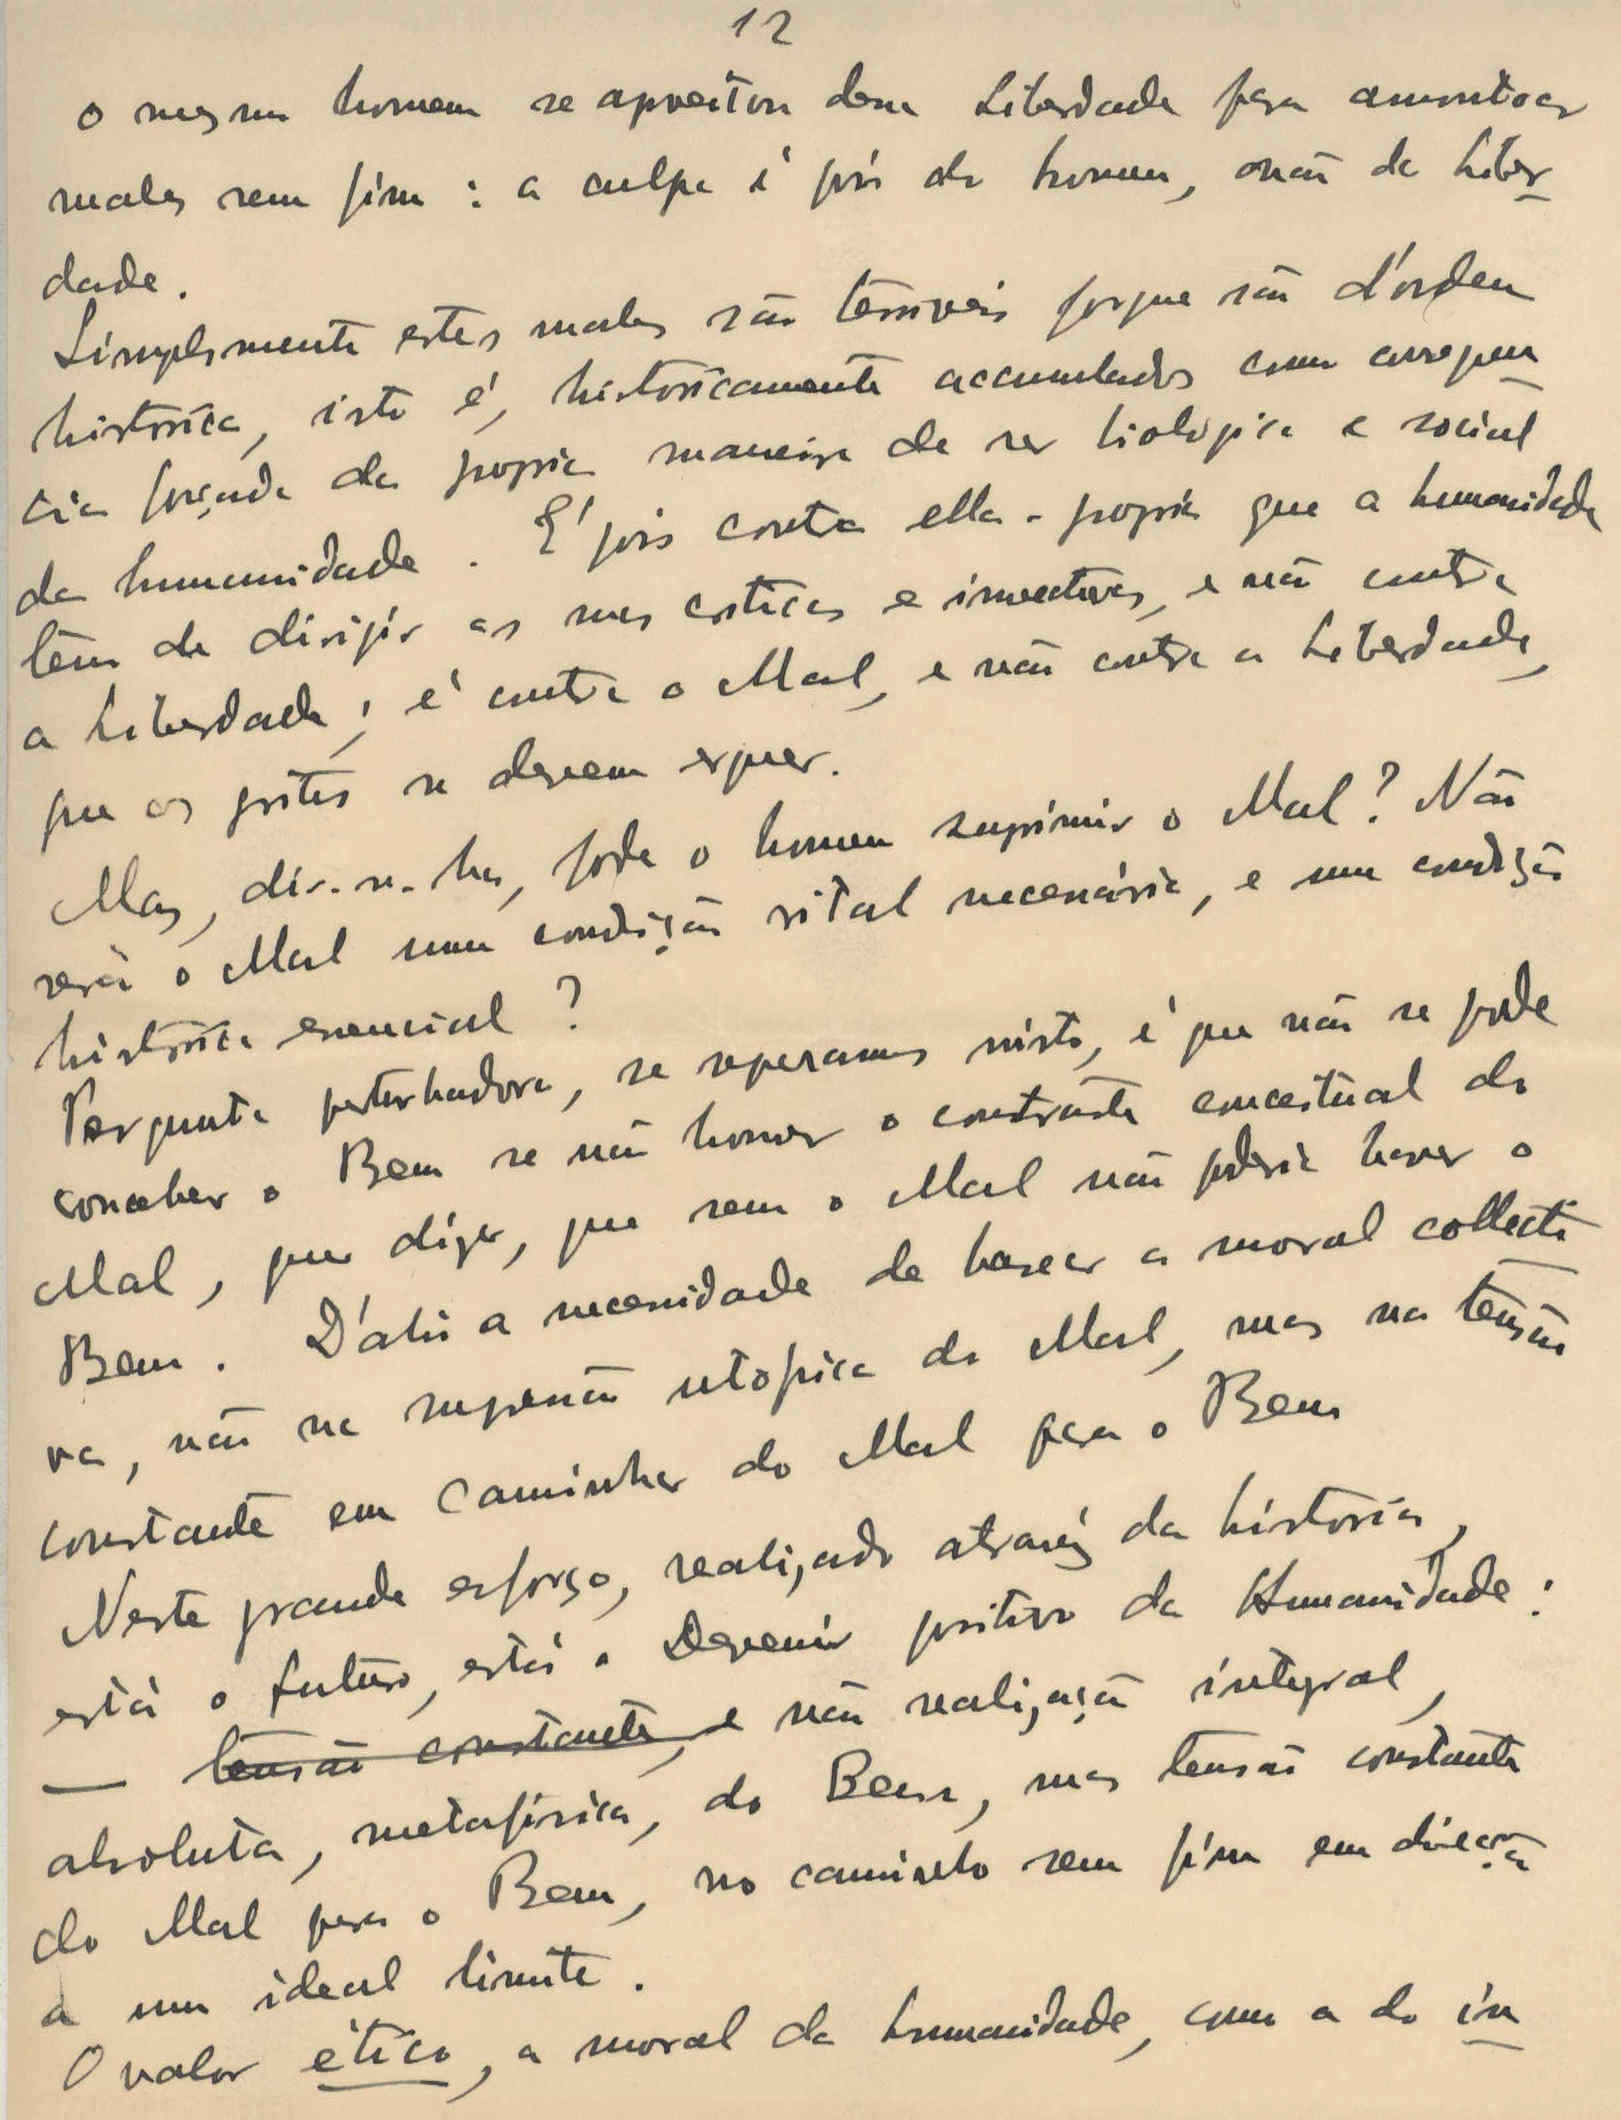 12
o mesmo homem se aproveitou dessa Liberdade para amontoar
males sem fim : a culpa é pois do homem, e não da Liber
dade.
Simplesmente estes males são terriveis porque são d'ordem
historica, isto é, historicamente accumulados como consequen
cia forçada da propria maneira de ser biologica e social
da humanidade. É pois contra ella-propria que a humanidade
tem de dirigir as suas criticas e invectivas, e não contra
a Liberdade ; é contra o Mal, e não contra a Liberdade,
que os gritos se devem erguer.
Mas, dir-se-ha, pode o homem suprimir o Mal? Não
será o Mal uma condição vital necessária, e uma condição
historica essencial ?
Pergunta perturbadora, se reparamos nisto, é que não se pode
conceber o Bem se não houver o contraste conceitual do
Mal, quer dizer, que sem o Mal não poderia haver o
Bem. D'ahi a necessidade de basear a moral collecti
va, não na supressão utopica do Mal, mas na tensão
constante em caminhar do Mal para o Bem
Neste grande esforço, realizado através da historia,
está o futuro, está o Devenir positivo da Humanidade :
— tensão constante, e não realização integral,
absoluta, metafisica, do Bem, mas tensão constante
do Mal para o Bem, no caminho sem fim em direcção
a um ideal limite.
O valor ético, a moral da humanidade, como a do in